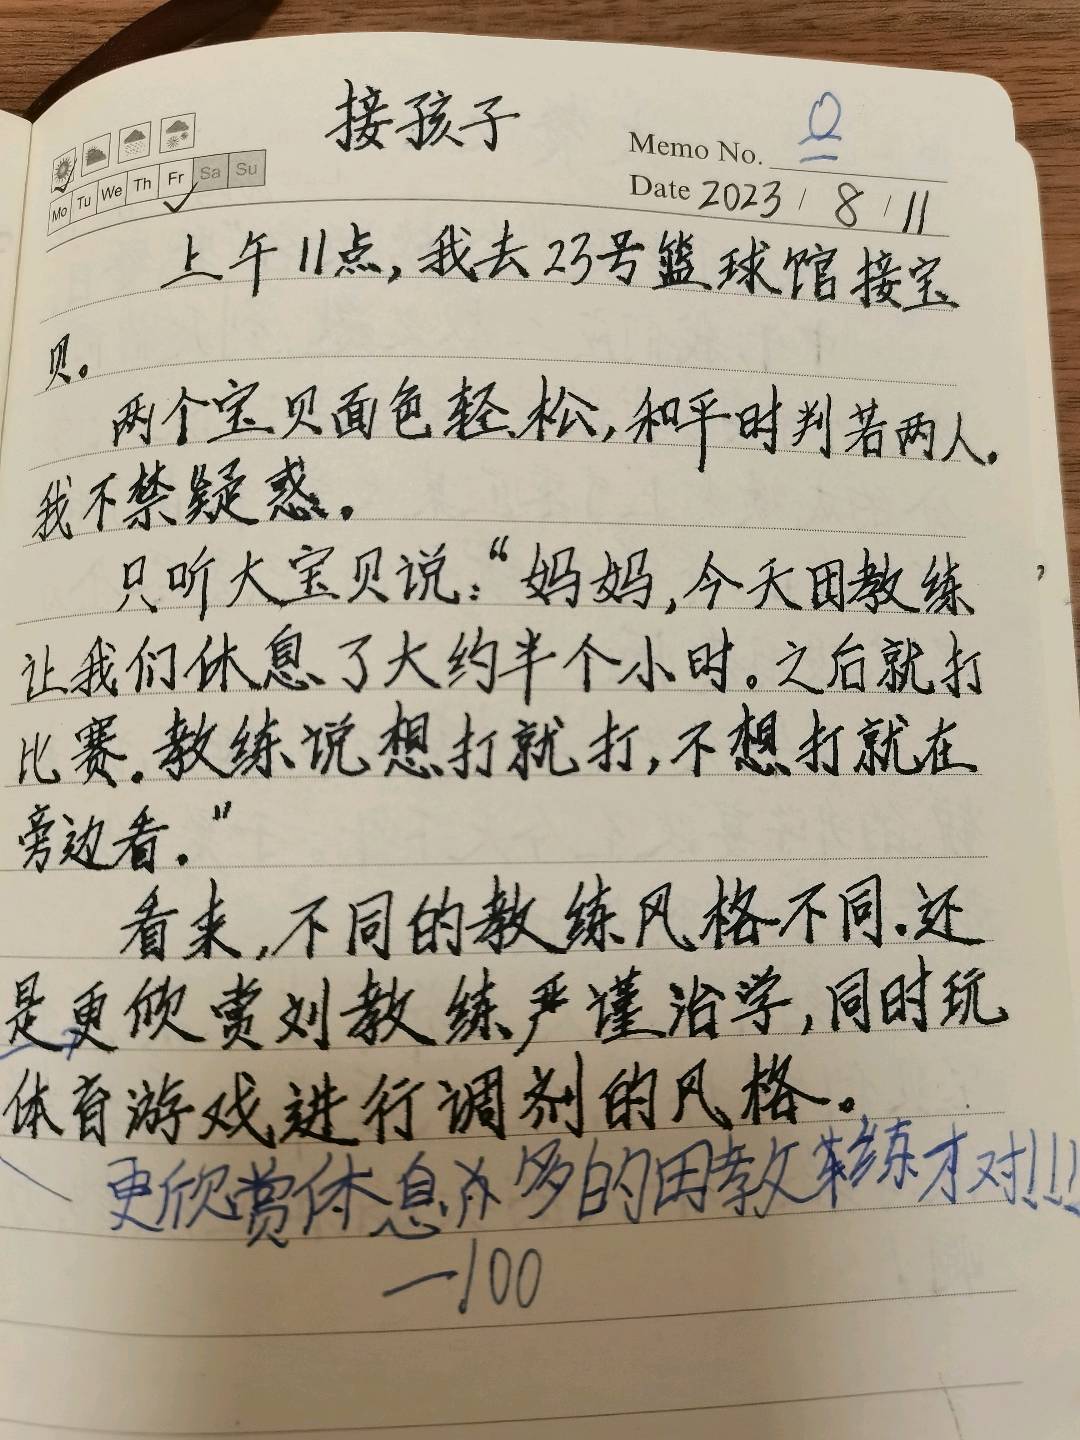 接孩子
Memo No. 0
Mo Tu We Th Fr Sa Su
Date 2023 / 8 / 11
上午11点,我去23号篮球馆接宝
贝。
两个宝贝面色轻松,和平时判若两人.
我不禁疑惑.
只听大宝贝说:“妈妈,今天田教练
让我们休息了大约半个小时。之后就打
比赛.教练说想打就打,不想打就在
旁边看."
看来,不同的教练风格不同.还
是更欣赏刘教练严谨治学,同时玩
体育游戏进行调剂的风格。
更欣赏休息多的田教练才对!!!
-100